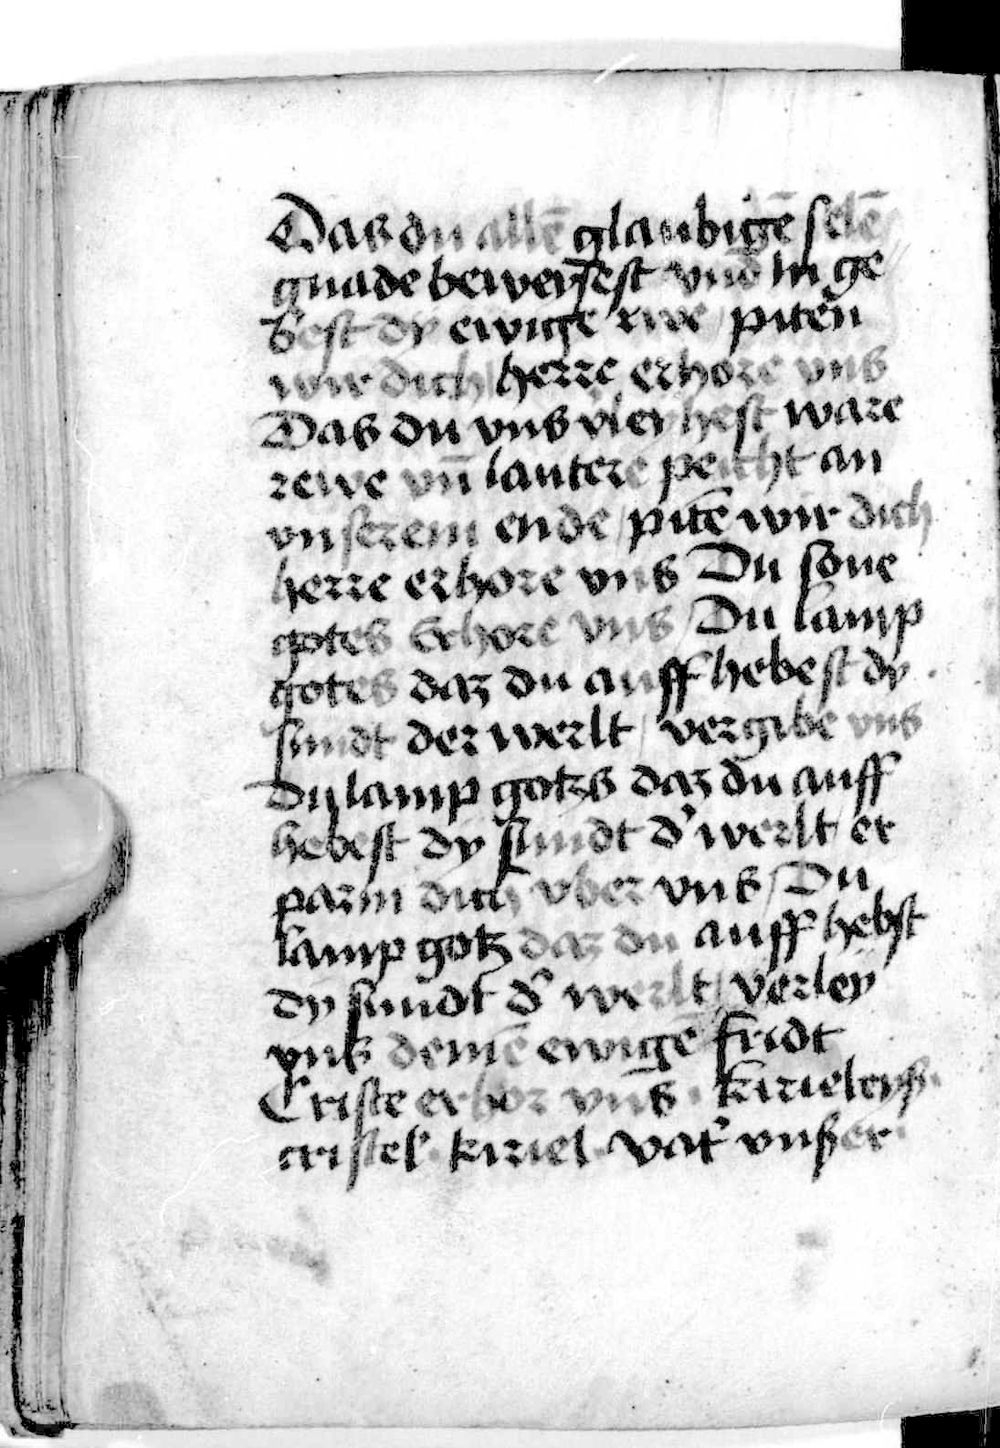 Das du allē glaubigē selē
gnade beweysest vnd̄ in ge
best dy ewige rwe piten̄
wir dich herre erhore vns
Das du vns v̓leyhest ware
rewe vn̄ lautere peicht an
vnserem ende / pitē wir dich
herre erhore vns Du sone
gotes Erhore vns / Du lamp
gotes daz du auff hebest dy
sundt der werlt / vergibe vns
Du lamp gotzs daz du auff
hebest dy sundt d̓ werlt er
parm dich vber vns / Du
lamp gotz daz du auff hebst
dy sundt d̓ werlt / verley
vnß deinē ewigē fridt
Criste erhor vns · kirieleyß ·
cristel · kiriel · vat̓ vnßer ·